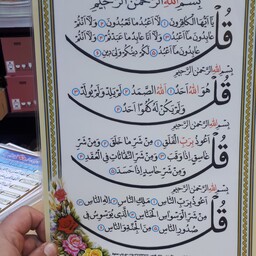 بسم الله الرحمن الرحيم
قل يا أيها الكافرون ۝ لا أعبد ما تعبدون ۝ ولا أنتم
عابدون ما أعبد ۝ ولا أنا عابد ما عبدتم ۝ ولا أنتم
عابدون ما أعبد ۝ لكم دينكم ولي دين ۝
بسم الله الرحمن الرحيم
قل هو الله أحد ۝ الله الصمد ۝ لم يلد ولم يولد ۝
ولم يكن له كفوا أحد ۝
بسم الله الرحمن الرحيم
قل أعوذ برب الفلق ۝ من شر ما خلق ۝ ومن شر
غاسق إذا وقب ۝ ومن شر النفاثات في العقد ۝
ومن شر حاسد إذا حسد ۝
بسم الله الرحمن الرحيم
قل أعوذ برب الناس ۝ ملك الناس ۝ إله الناس ۝
من شر الوسواس الخناس ۝ الذي يوسوس في
صدور الناس ۝ من الجنة والناس ۝